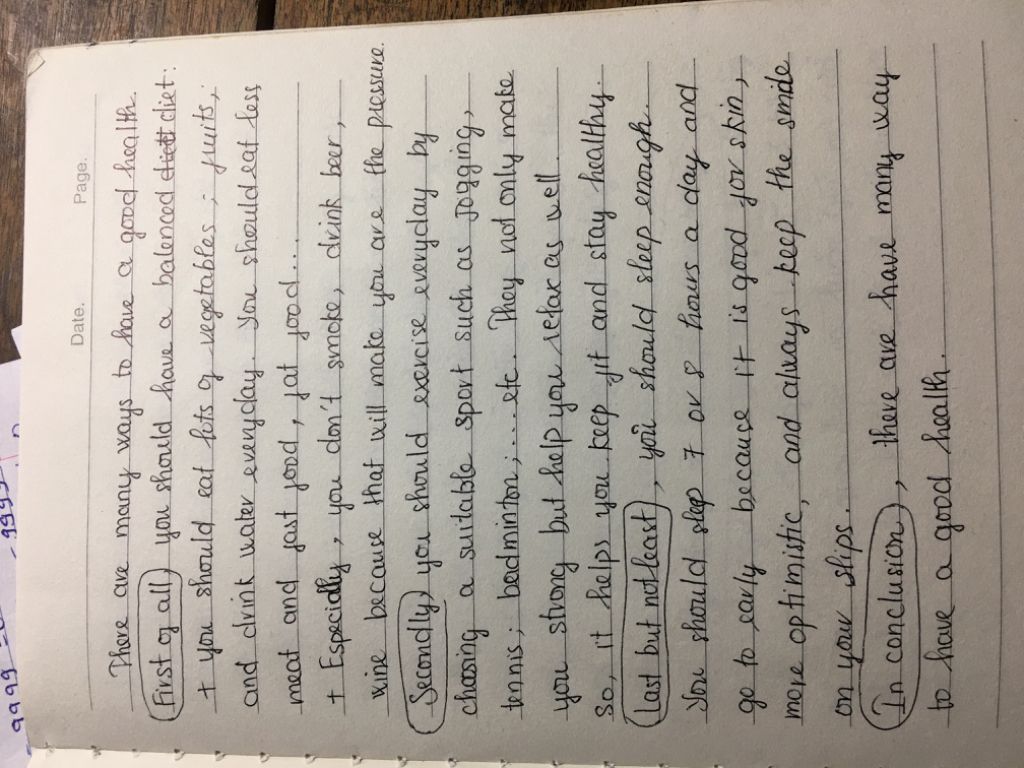 Date. Page.
There are many ways to have a good health.
First of all, you should have a balenced diett diet:
+ you should eat lots of vegetables; fruits;
and drink water everyday. You should eat less
meat and fast food, fat food...
+ Especially, you don't smoke, drink beer,
wine because that will make you are the pressure.
Secondly, you should exercise everyday by
choosing a suitable sport such as jogging,
tennis; badminton;....etc. They not only make
you strong but help you relax as well.
So, it helps you keep fit and stay healthy.
Last but not least, you should sleep enough.
You should sleep 7 or 8 hours a day and
go to early because it is good for skin,
more optimistic, and always keep the smile
on your slips.
In conclusion, there are have many way
to have a good health.